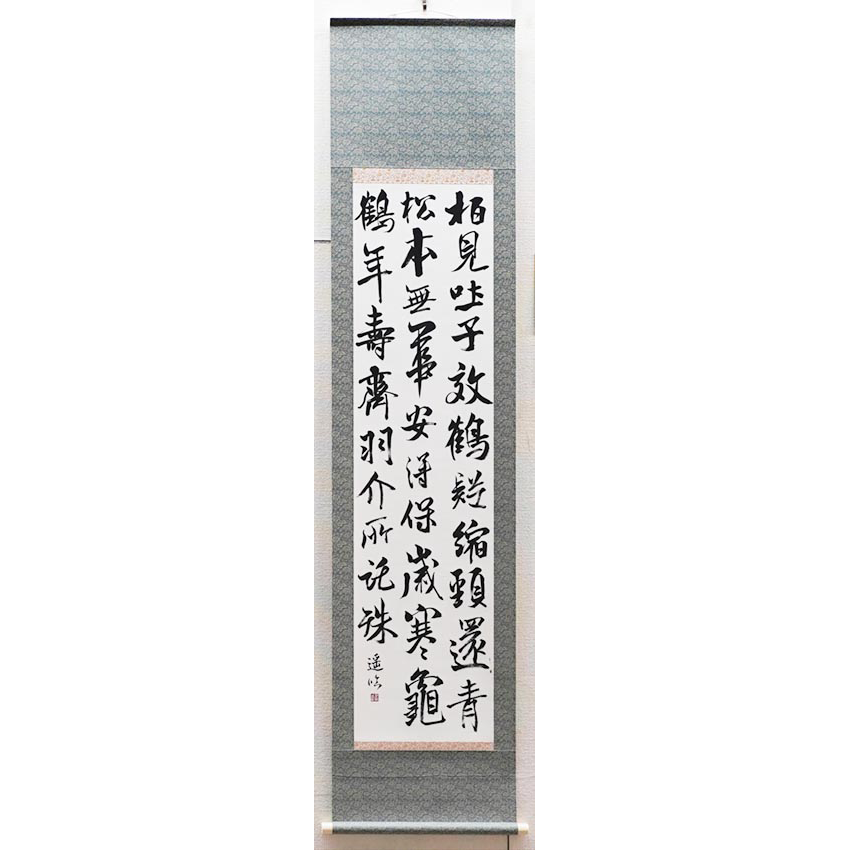 柏見吐子效鶴疑縮頸還青
松本無華安得保歲寒龜
鶴年壽齊羽介所託殊
遥臨